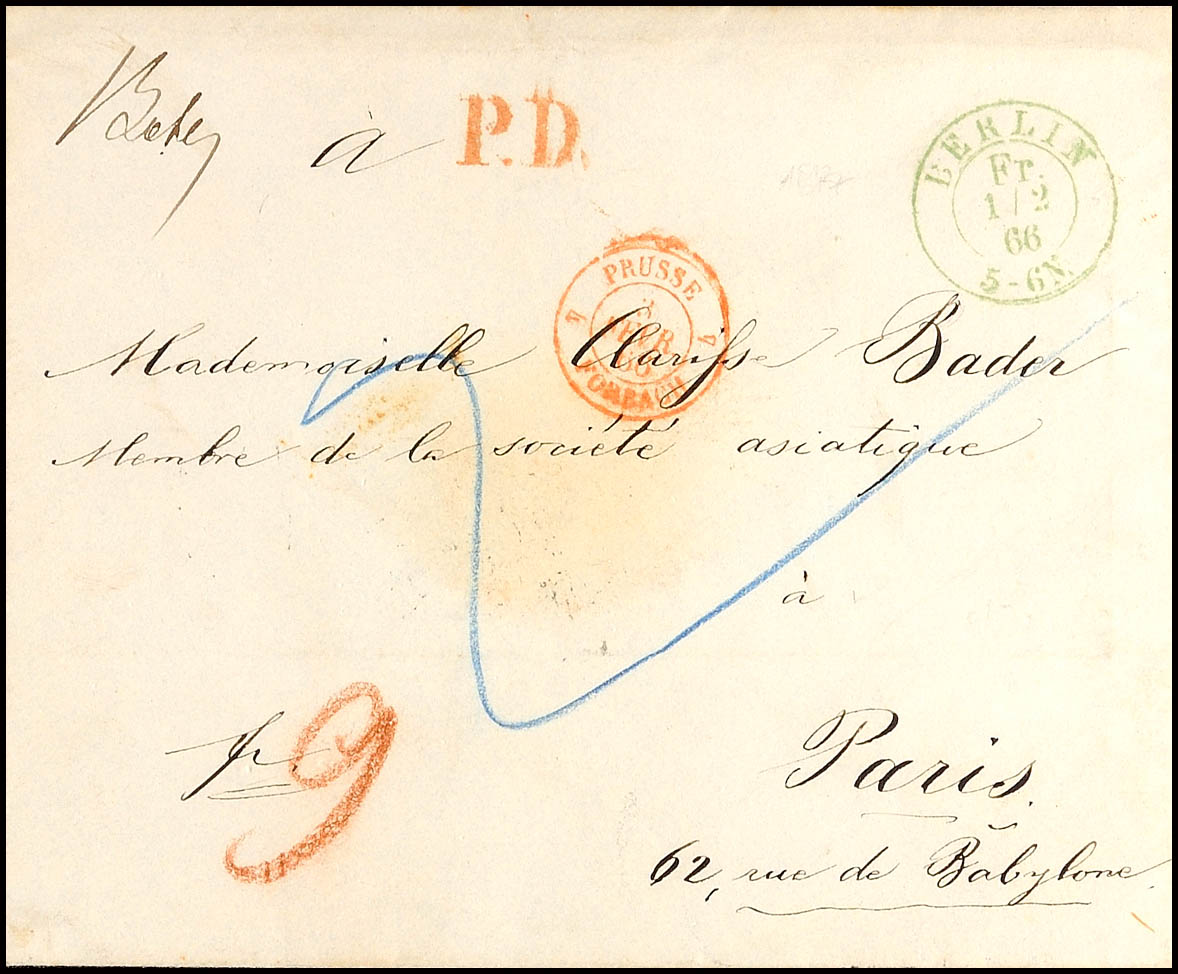 à P.D.
BERLIN
Fr.
1/2
66
5-6N.
PRUSSE
3
FEVR
66
FORBACH
Mademoiselle Clarisse Bader
Membre de la société asiatique
à
fr. 9
Paris.
62, rue de Babylone.